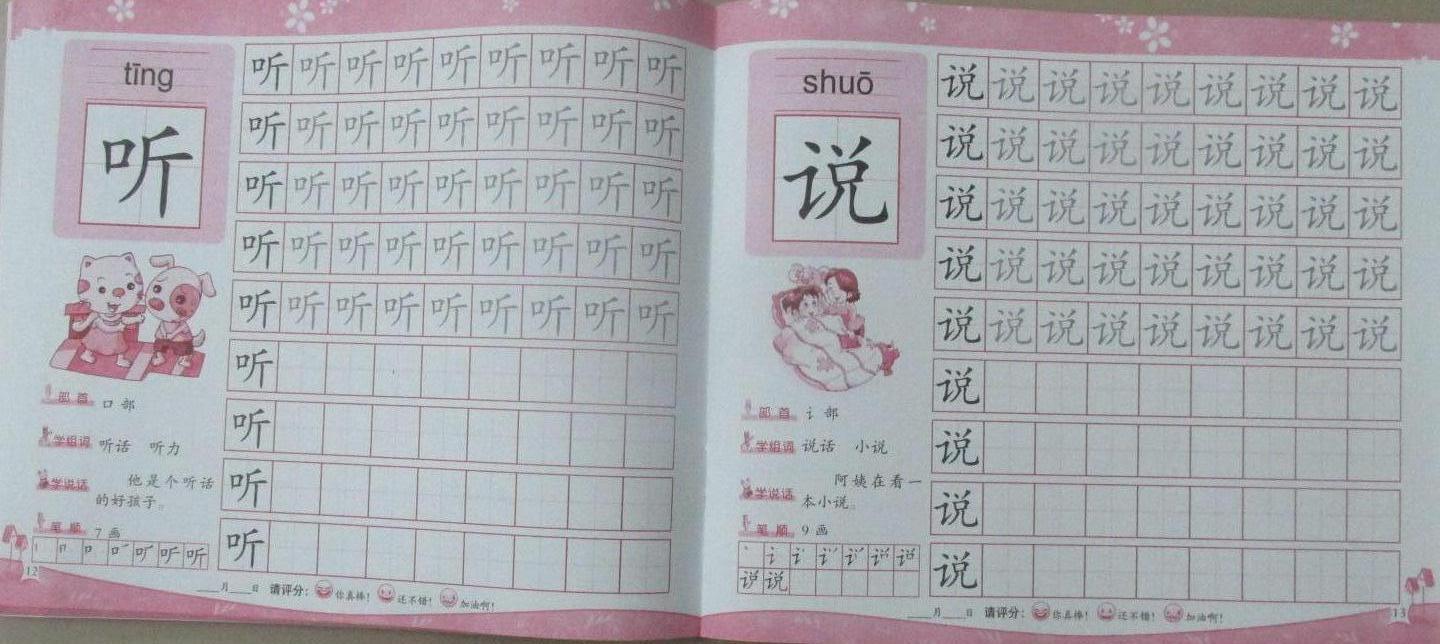 tīng
听
听听听听听听听听听
听听听听听听听听听
听听听听听听听听听
听听听听听听听听听
听听听听听听听听听
听
听
听
听
部首 口部
学组词 听话 听力
学说话 他是个听话
的好孩子。
笔顺 7画
丨 𠃍 口 口丿 叮 听 听
12
___月___日 请评分: 你真棒! 还不错! 加油啊!
shuō
说
说说说说说说说说说
说说说说说说说说说
说说说说说说说说说
说说说说说说说说说
说说说说说说说说说
说
说
说
说
部首 讠部
学组词 说话 小说
学说话 阿姨在看一
本小说。
笔顺 9画
说 说
___月___日 请评分: 你真棒! 还不错! 加油啊!
13